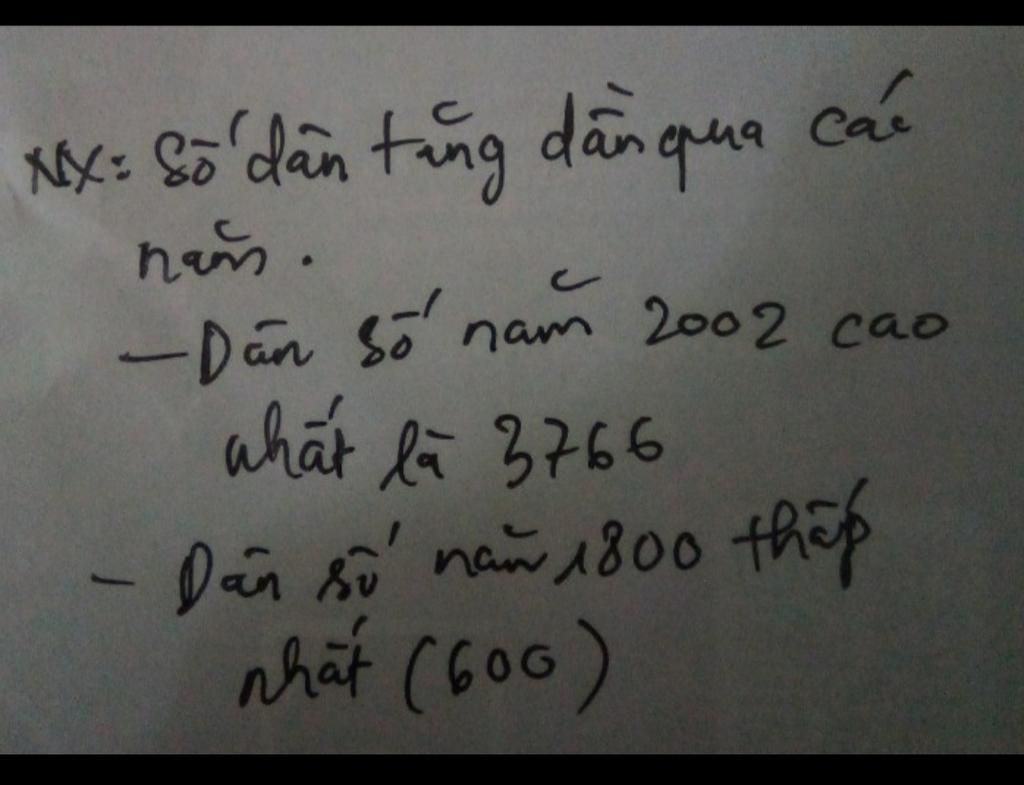 NX: Số dân tăng dần qua các
năm.
- Dân số năm 2002 cao
nhất là 3766
- Dân số năm 1800 thấp
nhất (600)